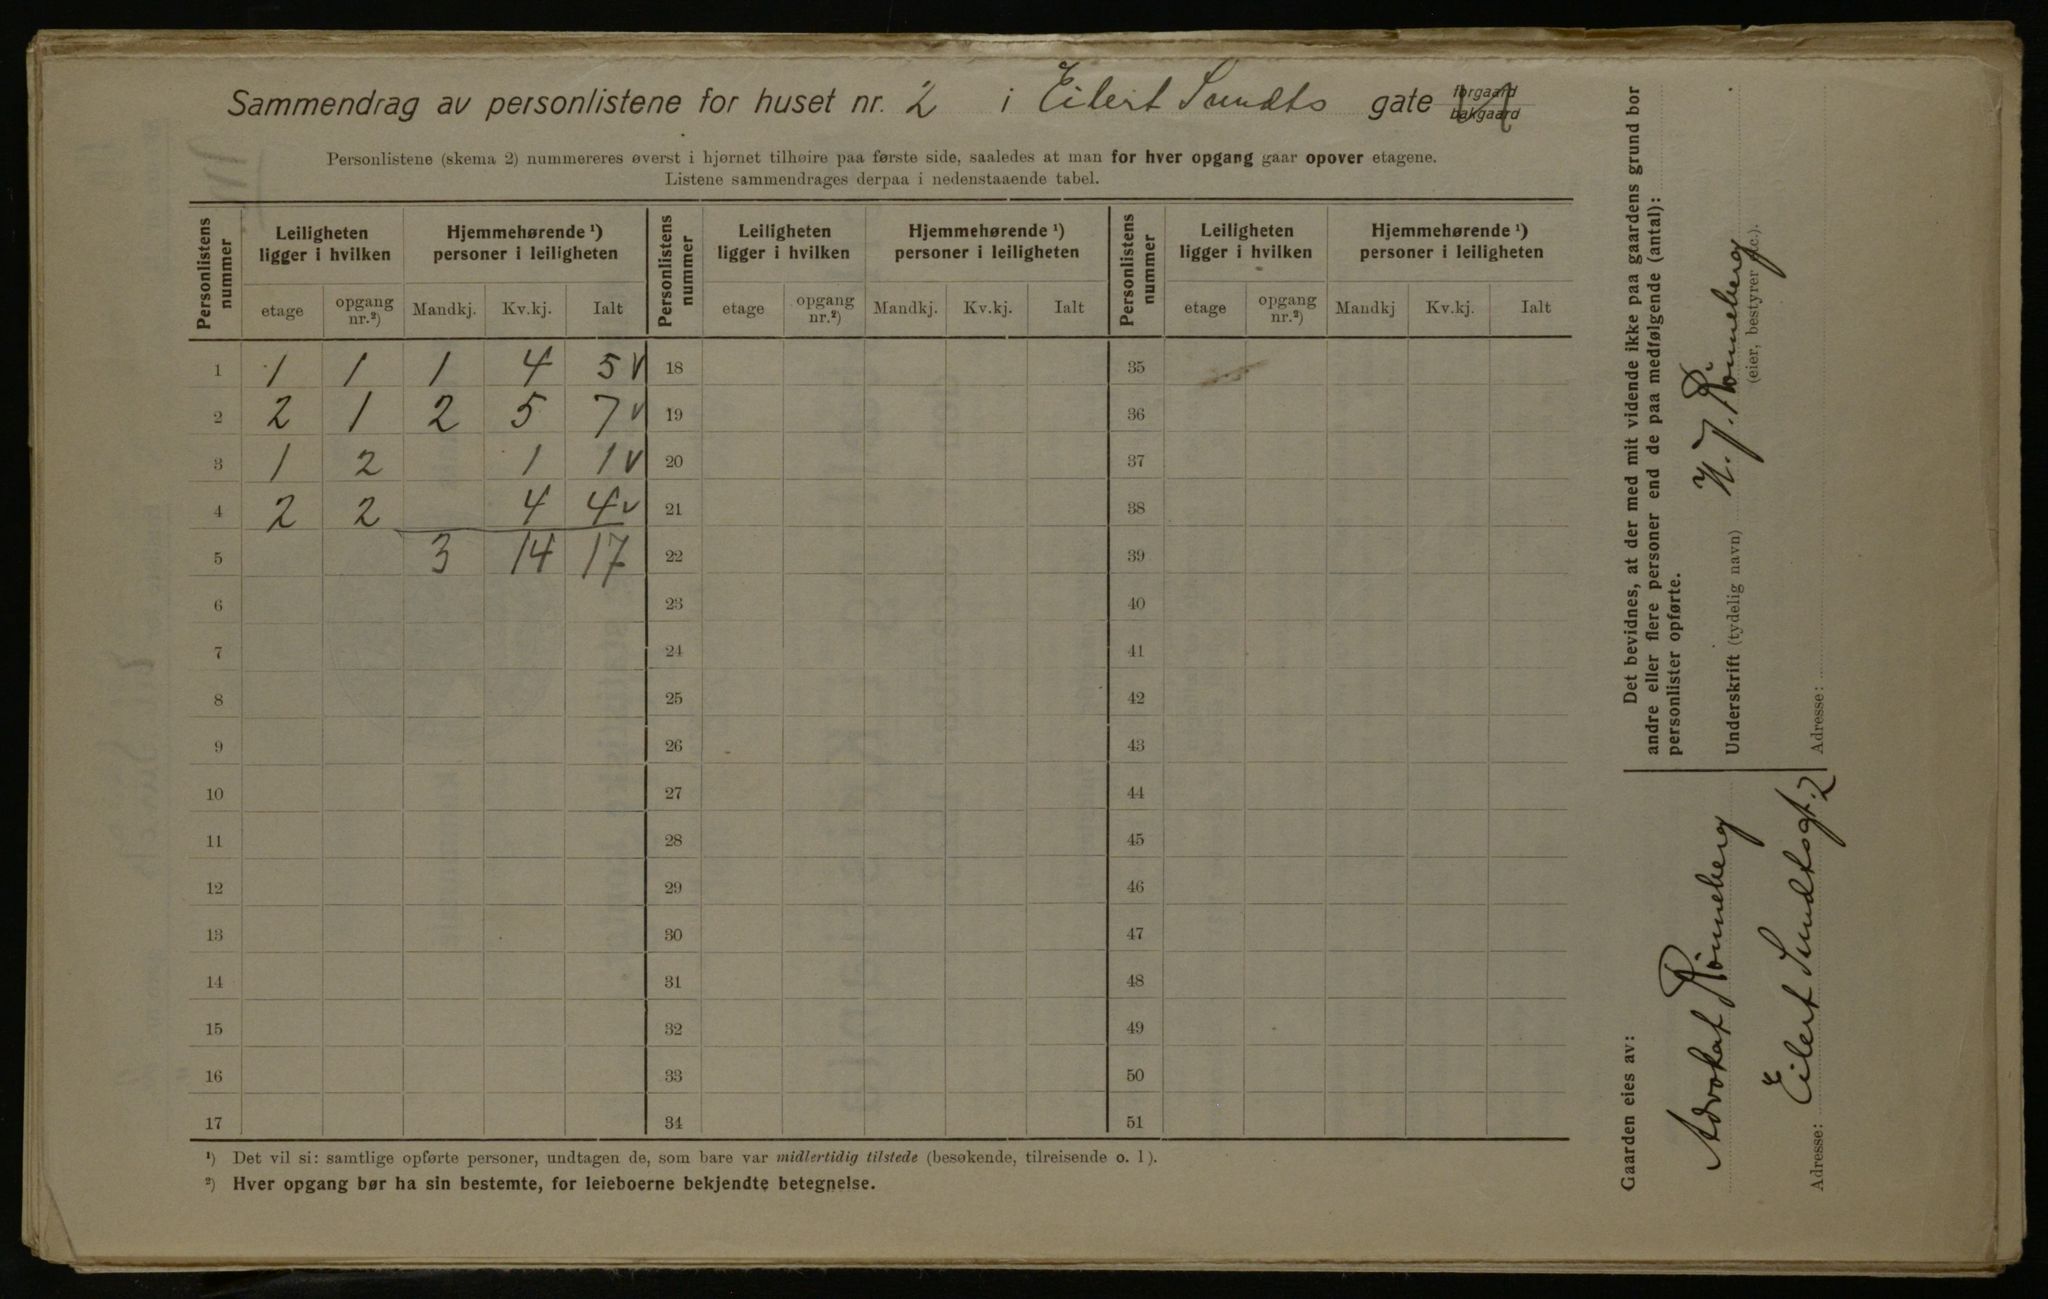 Sammendrag av personlistene for huset nr. 2 i Eilert Sundts gate forgaard bakgaard
Personlistene (skema 2) nummereres øverst i hjørnet tilhøire paa første side, saaledes at man for hver opgang gaar opover etagene.
Listene sammendrages derpaa i nedenstaaende tabel.
Personlistens nummer Leiligheten ligger i hvilken Hjemmehørende ¹) personer i leiligheten Personlistens nummer Leiligheten ligger i hvilken Hjemmehørende ¹) personer i leiligheten Personlistens nummer Leiligheten ligger i hvilken Hjemmehørende ¹) personer i leiligheten
etage opgang nr.²) Mandkj. Kv.kj. Ialt etage opgang nr.²) Mandkj. Kv.kj. Ialt etage opgang nr.²) Mandkj Kv.kj. Ialt
1 1 1 1 4 5 V 18 35
2 2 1 2 5 7 V 19 36
3 1 2 1 1 V 20 37
4 2 2 4 4 V 21 38
5 3 14 17 22 39
6 23 40
7 24 41
8 25 42
9 26 43
10 27 44
11 28 45
12 29 46
13 30 47
14 31 48
15 32 49
16 33 50
17 34 51
¹) Det vil si: samtlige opførte personer, undtagen de, som bare var midlertidig tilstede (besøkende, tilreisende o. l).
²) Hver opgang bør ha sin bestemte, for leieboerne bekjendte betegnelse.
Det bevidnes, at der med mit vidende ikke paa gaardens grund bor
andre eller flere personer end de paa medfølgende (antal):
personlister opførte.
Underskrift (tydelig navn) H. J. Rönneberg
(eier, bestyrer etc.).
Adresse:
Gaarden eies av:
Advokat Rönneberg
Adresse: Eilert Sundtsgt. 2